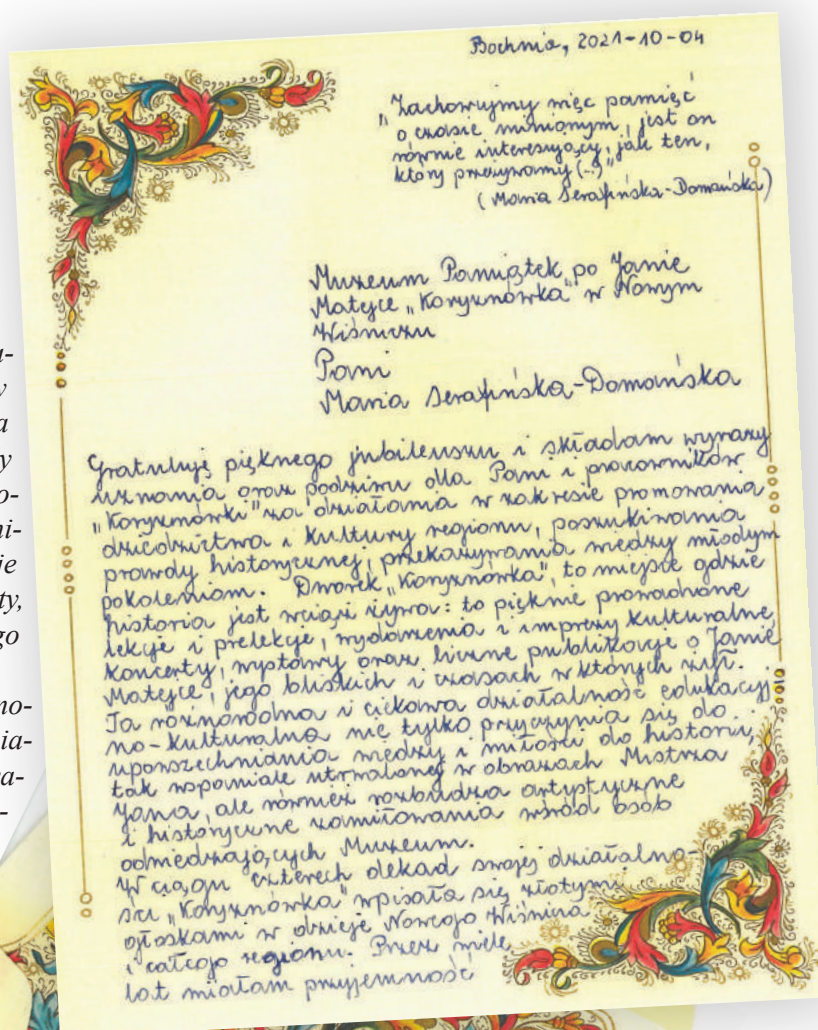 Bochnia, 2021-10-04
"Zachowujmy więc pamięć
o czasie minionym, jest on
równie interesujący, jak ten,
który przeżywamy (...)"
(Maria Serafińska-Domańska)
Muzeum Pamiątek po Janie
Matejce "Koryznówka" w Nowym
Wiśniczu
Pani
Maria Serafińska-Domańska
Gratuluję pięknego jubileuszu i składam wyrazy
uznania oraz podziwu dla Pani i pracowników
"Koryznówki" za działania w zakresie promowania
dziedzictwa i kultury regionu, poszukiwania
prawdy historycznej, przekazywania wiedzy młodym
pokoleniom. Dworek "Koryznówka", to miejsce gdzie
historia jest wciąż żywa: to pięknie prowadzone
lekcje i prelekcje, wydarzenia i imprezy kulturalne,
koncerty, wystawy oraz liczne publikacje o Janie
Matejce, jego bliskich i czasach w których żył.
Ta różnorodna i ciekawa działalność edukacyj-
no-kulturalna nie tylko przyczynia się do
upowszechniania wiedzy i miłości do historii,
tak wspaniale utrwalonej w obrazach Mistrza
Jana, ale również rozbudza artystyczne
i historyczne zamiłowania wśród osób
odwiedzających Muzeum.
W ciągu czterech dekad swojej działalno-
ści "Koryznówka" wpisała się złotymi
zgłoskami w dzieje Nowego Wiśnicza
i całego regionu. Przez wiele
lat miałam przyjemność